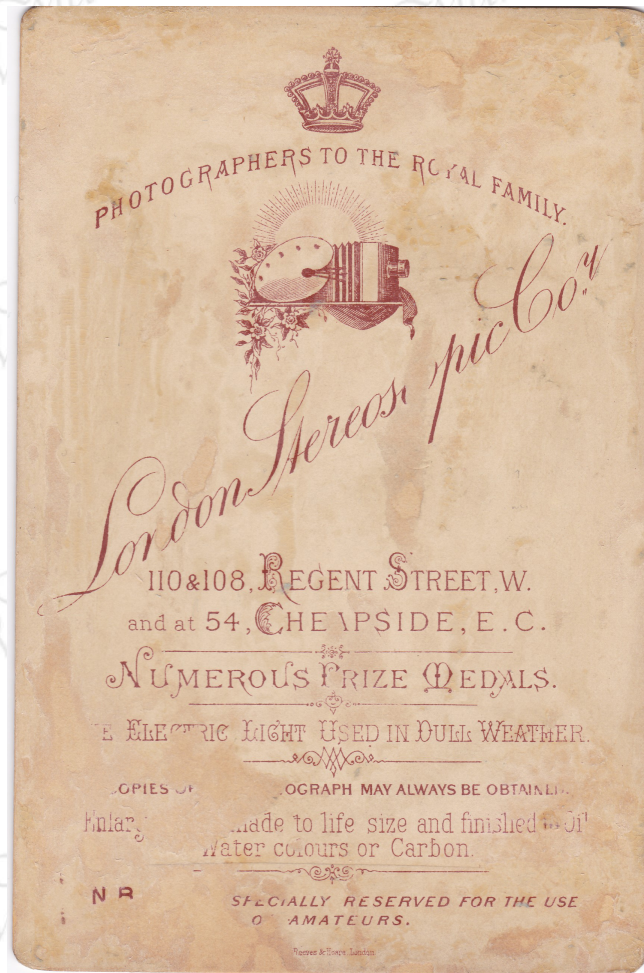 PHOTOGRAPHERS TO THE ROYAL FAMILY.
London Stereoscopic Coy.
110 & 108, REGENT STREET, W.
and at 54, CHEAPSIDE, E.C.
NUMEROUS PRIZE MEDALS.
ELECTRIC LIGHT USED IN DULL WEATHER.
COPIES OF OGRAPH MAY ALWAYS BE OBTAINED.
made to life size and finished in Oil
Water colours or Carbon.
N B SPECIALLY RESERVED FOR THE USE
OF AMATEURS.
London